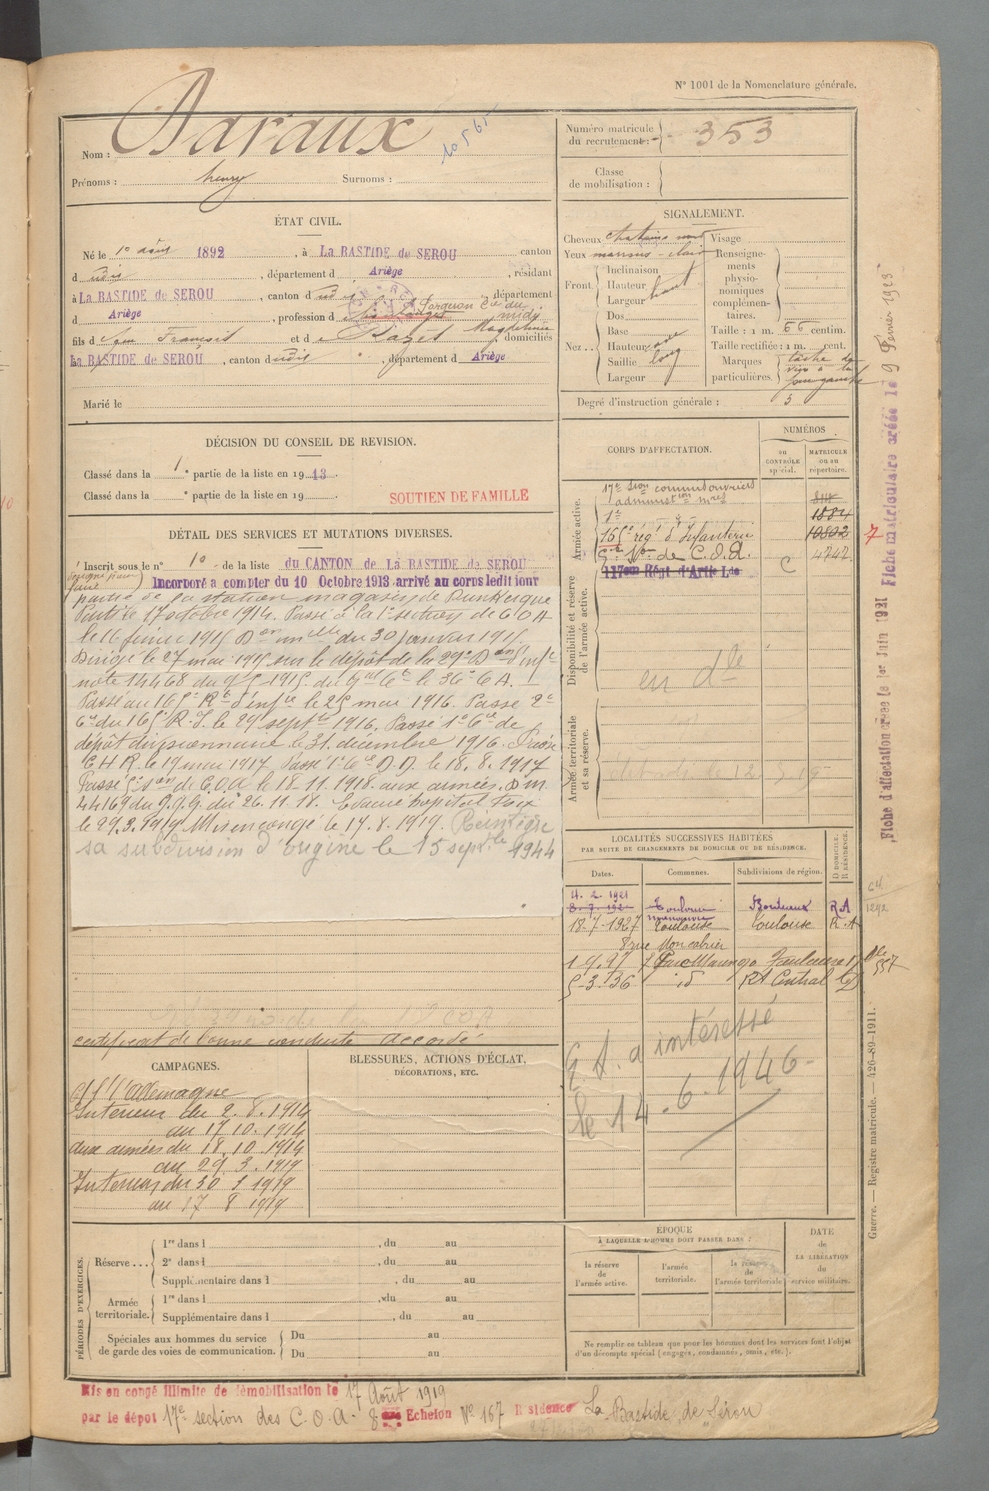 N° 1001 de la Nomenclature générale.
Nom : Daraux
10565
Prénoms : henry Surnoms :
Numéro matricule du recrutement : 353
Classe de mobilisation :
ÉTAT CIVIL.
Né le 1er août 1892, à La BASTIDE de SEROU canton
d udit, département d Ariège, résidant
à La BASTIDE de SEROU, canton d udit, département
d Ariège, profession d
Cie du midi
fils d François et d e Magdeleine domiciliés
La BASTIDE de SEROU, canton d udit, département d Ariège
Marié le
SIGNALEMENT.
Cheveux chatains
Yeux marrons clair
Front Inclinaison
Hauteur haut
Largeur
Nez Dos
Base
Hauteur
Saillie long
Largeur
Visage
Renseignements physionomiques complémentaires.
Taille : 1 m. 66 centim.
Taille rectifiée : 1 m. cent.
Marques particulières. tache de
Degré d'instruction générale : 3
DÉCISION DU CONSEIL DE REVISION.
Classé dans la 1e partie de la liste en 1913.
Classé dans la e partie de la liste en 19
SOUTIEN DE FAMILLE
DÉTAIL DES SERVICES ET MUTATIONS DIVERSES.
Inscrit sous le n° 10 de la liste du CANTON de LA BASTIDE de SEROU
Incorporé a compter du 10 Octobre 1913 arrivé au corps ledit jour
partie de la station magasin de Dunkerque
Parti le 17 octobre 1914. Passé à la 1e section de C O A
le 16 février 1915 Don mlle du 30 janvier 1915.
Dirigé le 27 mai 1915 sur le dépôt de la 29e Don d'infie
note 14468 du 9-5-1915 du Gnal Ct le 36e C A.
Passé au 165e Rt d'infie le 25 mai 1916. Passé 2e
Cie du 165e R.I. le 29 septbre 1916. Passé 1e Cie de
dépôt divisionnaire le 31 décembre 1916. Passé
C H R le 19 mai 1917 Passé 1e Cie D.D. le 18.8.1917
Passé 5e Son de C.O.A le 18.11.1918 aux armées. D m
44169 du G.Q.G. du 26.11.18. Evacué hôpital Foix
le 29.3.1919 Mis en congé le 17.8.1919. Réintègre
sa subdivision d'origine le 15 septbre 1944
certificat de bonne conduite accordé
CORPS D'AFFECTATION.
NUMÉROS
au CONTRÔLE spécial.
MATRICULE ou au répertoire.
Armée active.
17e Son commis ouvriers
administion mres
1e
1884
165e rég. d'Infanterie 10802
5e Son de C.O.A. C 4742
117eme Régt d'Artie Lde
Disponibilité et réserve de l'armée active.
en dle
Armée territoriale et sa réserve.
LOCALITÉS SUCCESSIVES HABITÉES
PAR SUITE DE CHANGEMENTS DE DOMICILE OU DE RÉSIDENCE.
Dates. Communes. Subdivisions de région. D DOMICILE. R RÉSIDENCE.
4.2.1921 Bordeaux R A
18.7.1927 Toulouse Toulouse R.A
8 rue Moncabrier
5-3-36 id RA Central
G A a intéressé
le 14-6-1946-
CAMPAGNES.
C/ l'Allemagne
Intérieur du 2.8.1914
au 17.10.1914
aux armées du 18.10.1914
au 29 3.1919
Intérieur du 30 3 1919
au 17 8 1919
BLESSURES, ACTIONS D'ÉCLAT,
DÉCORATIONS, ETC.
PÉRIODES D'EXERCICES.
Réserve... 1re dans l , du au
2e dans l , du au
Supplémentaire dans l , du au
Armée territoriale. 1re dans l , du au
Supplémentaire dans l , du au
Spéciales aux hommes du service de garde des voies de communication. Du au
Du au
ÉPOQUE
À LAQUELLE L'HOMME DOIT PASSER DANS :
la réserve de l'armée active.
l'armée territoriale.
la réserve de l'armée territoriale
DATE de LA LIBÉRATION du service militaire.
Ne remplir ce tableau que pour les hommes dont les services font l'objet
d'un décompte spécial (engagés, condamnés, omis, etc.).
Mis en congé illimité de démobilisation le 17 Août 1919
par le dépôt 17e section des C.O.A. 8eme Echelon N° 167 Résidence La Bastide de Sérou
Fiche matriculaire créée le 9 Février 1923
Fiche d'affectation créée le 1er Juin 1921
Guerre. — Registre matricule. — 426-89-1911.